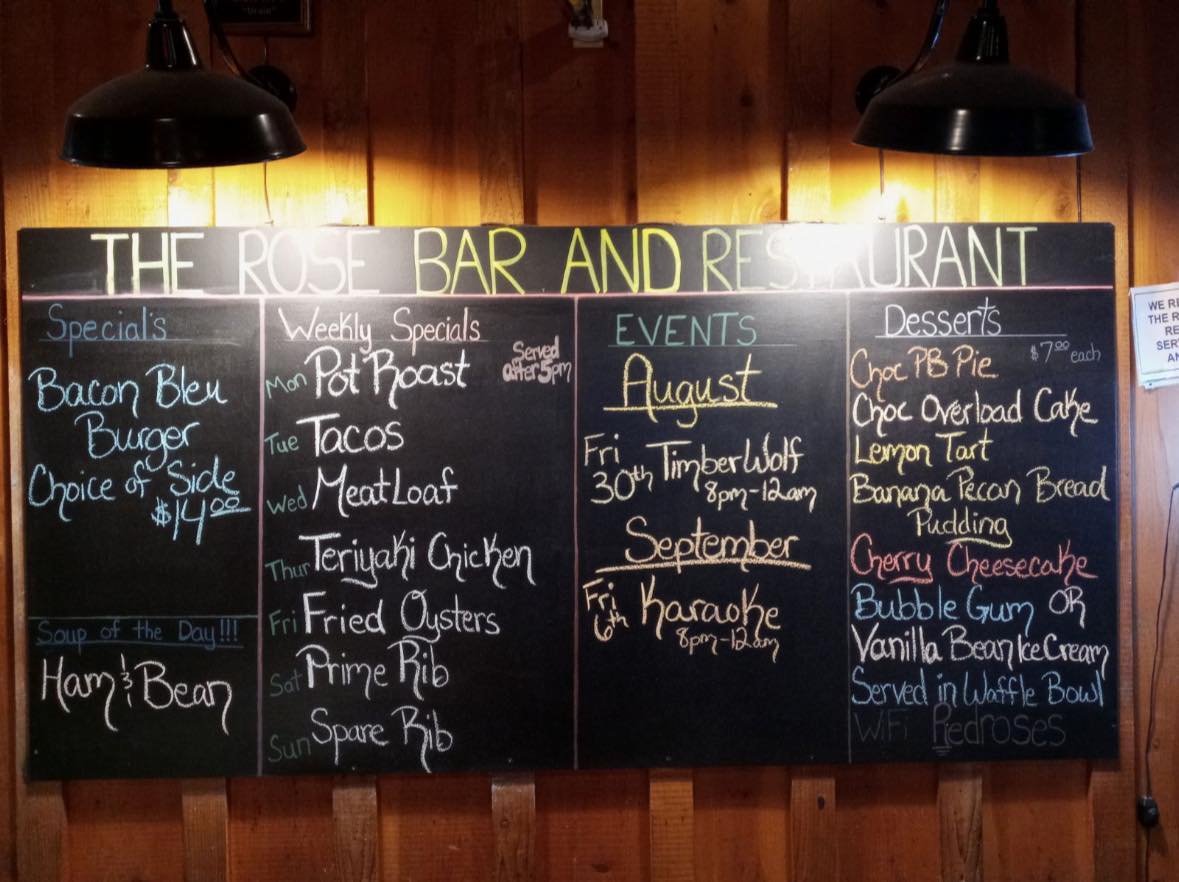 THE ROSE BAR AND RESTAURANT
Special's
Bacon Bleu
Burger
Choice of Side
$14.00
Soup of the Day!!!
Ham & Bean
Weekly Specials
Served
after 5pm
Mon Pot Roast
Tue Tacos
Wed MeatLoaf
Thur Teriyaki Chicken
Fri Fried Oysters
Sat Prime Rib
Sun Spare Rib
EVENTS
August
Fri
30th TimberWolf
8pm-12am
September
Fri
6th Karaoke
8pm-12am
Desserts
$7.00 each
Choc PB Pie
Choc Overload Cake
Lemon Tart
Banana Pecan Bread
Pudding
Cherry Cheesecake
Bubble Gum OR
Vanilla Bean Ice Cream
Served in Waffle Bowl
WiFi Redroses
WE RE
THE R
RE
SER
AN